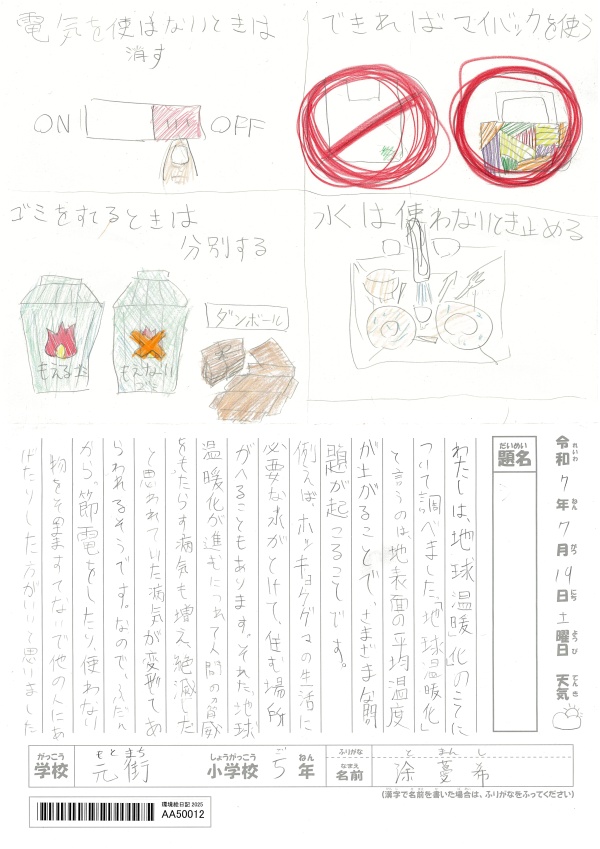 電気を使はないときは
消す
ON
OFF
できれば マイバックを使う
ゴミをすてるときは
分別する
もえるゴミ
もえない
ゴミ
ダンボール
水は使わないとき止める
令和7年7月19日土曜日 天気
れいわ ねん がつ にち ようび てんき
だいめい
題名
わたしは、地球温暖化のことに
ついて調べました。「地球温暖化」
と言うのは、地表面の平均温度
が上がることで、さまざまな問
題が起こることです。
例えば、ホッキョクグマの生活に
必要な氷がとけて、住む場所
がへることもあります。それた、地球
温暖化が進むにつれて人間の脅威
をもたらす病気も増え、絶滅した
と思われていた病気が変形であ
らわれるそうです。なので、ふだん
から、節電をしたり、使わない
物をそのますてないで他の人にあ
げたりした方がいいと思いました
がっこう
学校
もと まち
元街
しょうがっこう
小学校
ご
5
ねん
年
ふりがな
なまえ
名前
と まーん し
涂蔓希
(漢字で名前を書いた場合は、ふりがなをふってください)
環境絵日記 2025
AA50012